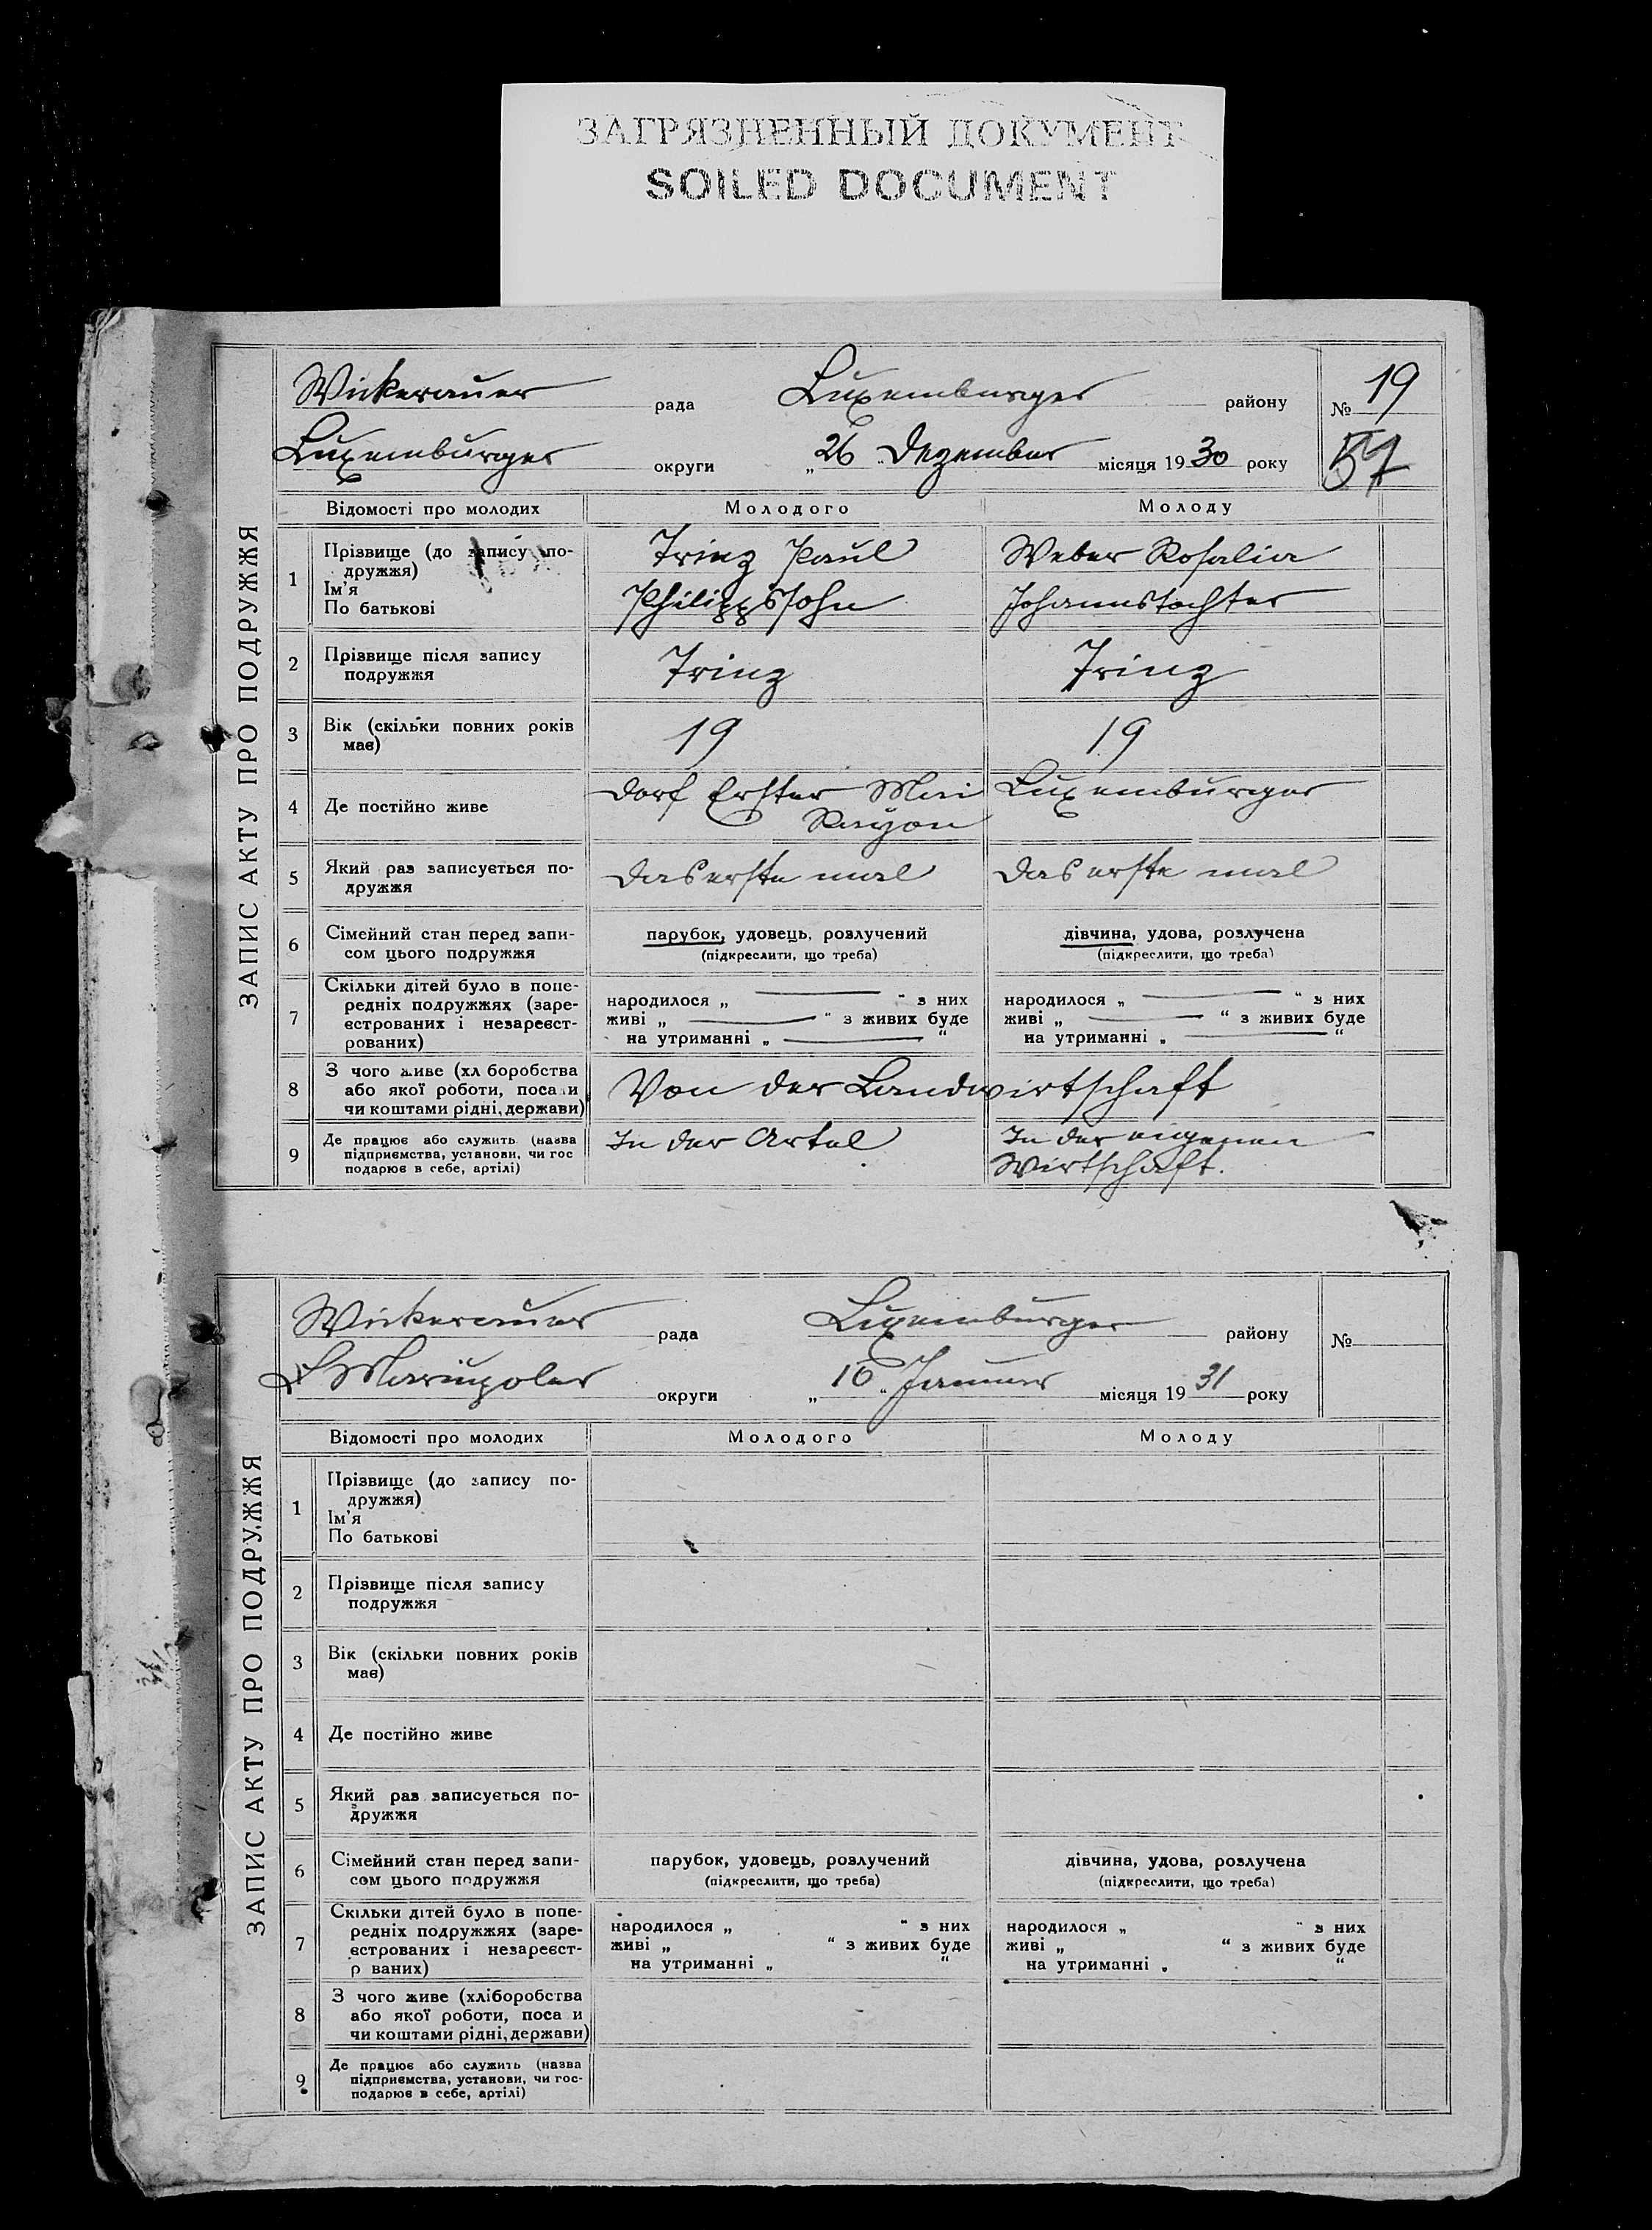 ЗАГРЯЗНЕННЫЙ ДОКУМЕНТ
SOILED DOCUMENT
ЗАПИС АКТУ ПРО ПОДРУЖЖЯ
Wickerauer рада Luxemburger району № 19
Luxemburger округи „26" Dezember місяця 1930 року 57
Відомості про молодих Молодого Молоду
1 Прізвище (до запису по-
дружжя)
Ім'я
По батькові
Trinz Paul
Philippssohn
Weber Rosalia
Johannstochter
2 Прізвище після запису
подружжя
Trinz Trinz
3 Вік (скільки повних років
має)
19 19
4 Де постійно живе
Dorf Erster Mai
Rayon
Luxemburger
5 Який раз записується по-
дружжя
das erste mal das erste mal
6 Сімейний стан перед запи-
сом цього подружжя
парубок, удовець, розлучений
(підкреслити, що треба)
дівчина, удова, розлучена
(підкреслити, що треба)
7 Скільки дітей було в попе-
редніх подружжях (заре-
єстрованих і незареєст-
рованих)
народилося „ — " з них
живі „ — " з живих буде
на утриманні „ — "
народилося „ — " з них
живі „ — " з живих буде
на утриманні „ — "
8 З чого живе (хл боробства
або якої роботи, поса и
чи коштами рідні, держави)
Von der Landwirtschaft
9 Де працює або служить (назва
підприємства, установи, чи гос
подарює в себе, артілі)
In der Artel
In der eigenen
Wirtschaft.
ЗАПИС АКТУ ПРО ПОДРУЖЖЯ
Wickerauer рада Luxemburger району №
Mariupoler округи „16" Januar місяця 1931 року
Відомості про молодих Молодого Молоду
1 Прізвище (до запису по-
дружжя)
Ім'я
По батькові
2 Прізвище після запису
подружжя
3 Вік (скільки повних років
має)
4 Де постійно живе
5 Який раз записується по-
дружжя
6 Сімейний стан перед запи-
сом цього подружжя
парубок, удовець, розлучений
(підкреслити, що треба)
дівчина, удова, розлучена
(підкреслити, що треба)
7 Скільки дітей було в попе-
редніх подружжях (заре-
єстрованих і незареєст-
р ваних)
народилося „ " з них
живі „ " з живих буде
на утриманні „ "
народилося „ " з них
живі „ " з живих буде
на утриманні „ "
8 З чого живе (хліборобства
або якої роботи, поса и
чи коштами рідні, держави)
9 Де працює або служить (назва
підприємства, установи, чи гос-
подарює в себе, артілі)